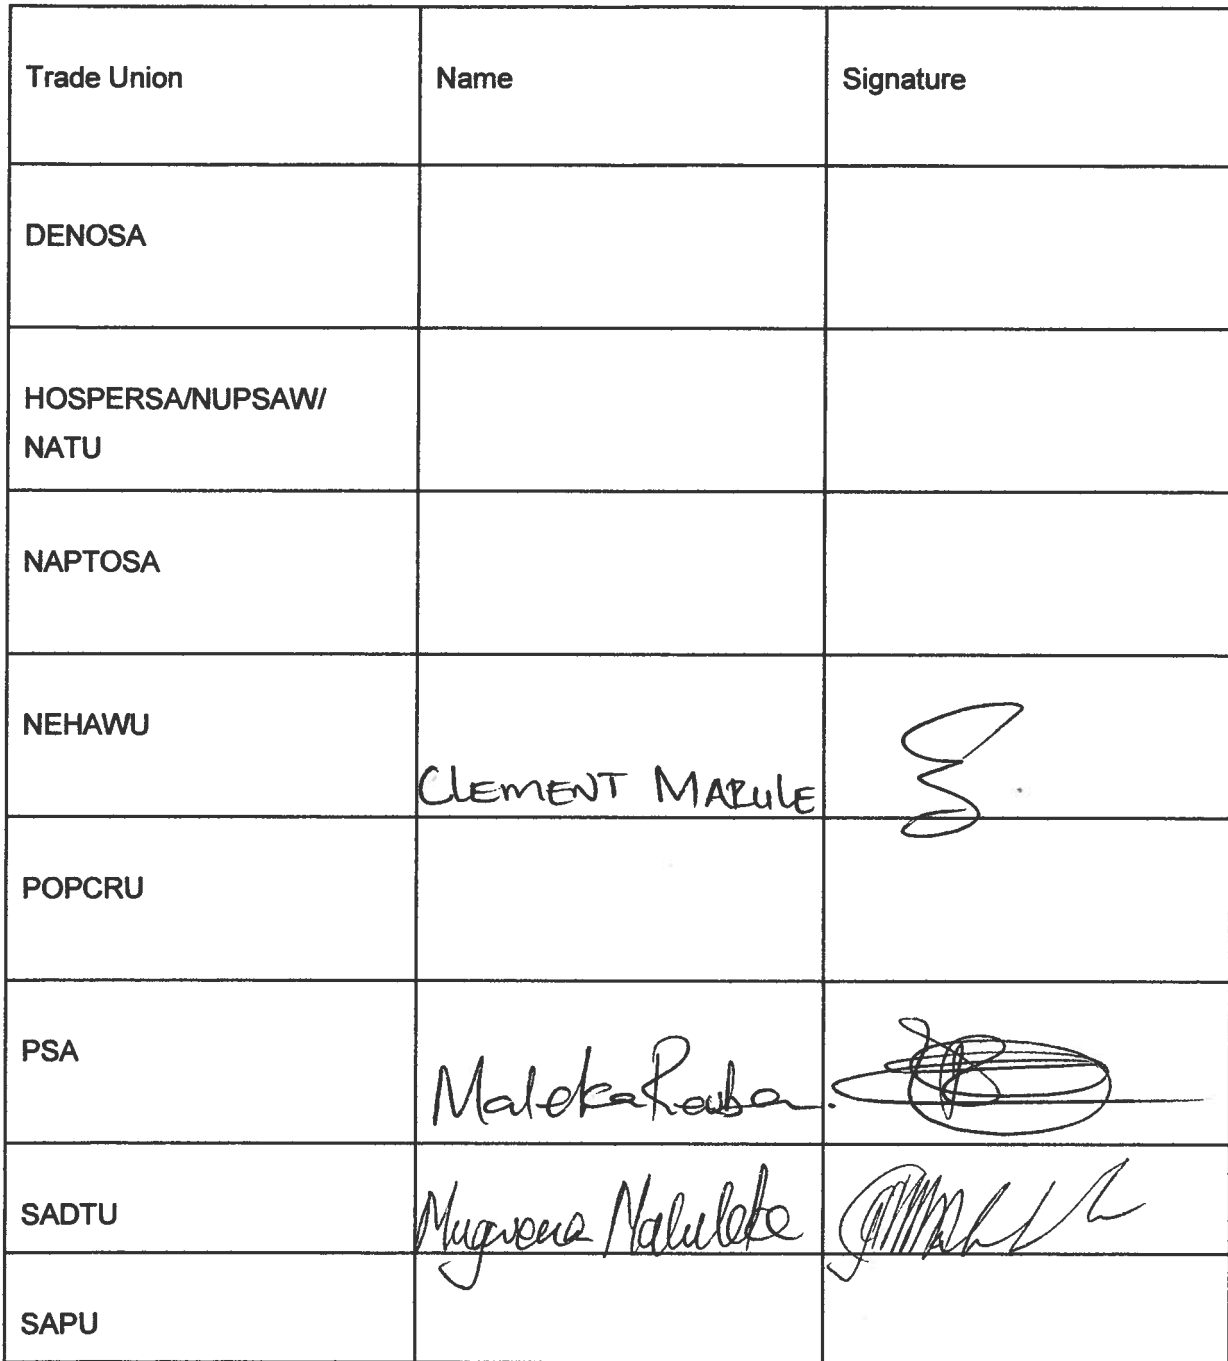 Trade Union Name Signature
DENOSA
HOSPERSA/NUPSAW/
NATU
NAPTOSA
NEHAWU
CLEMENT MARULE
POPCRU
PSA
Maleka
SADTU Mugwena Maluleke
SAPU